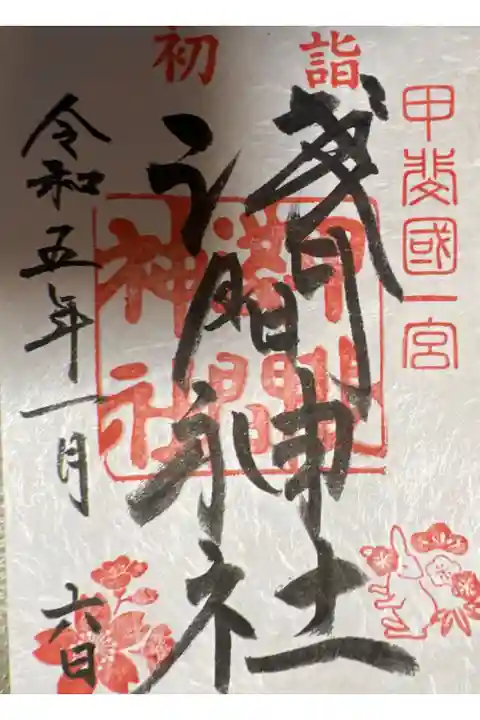 初詣
甲斐國一宮
淺間神社
淺間
神社
令和五年一月
六日